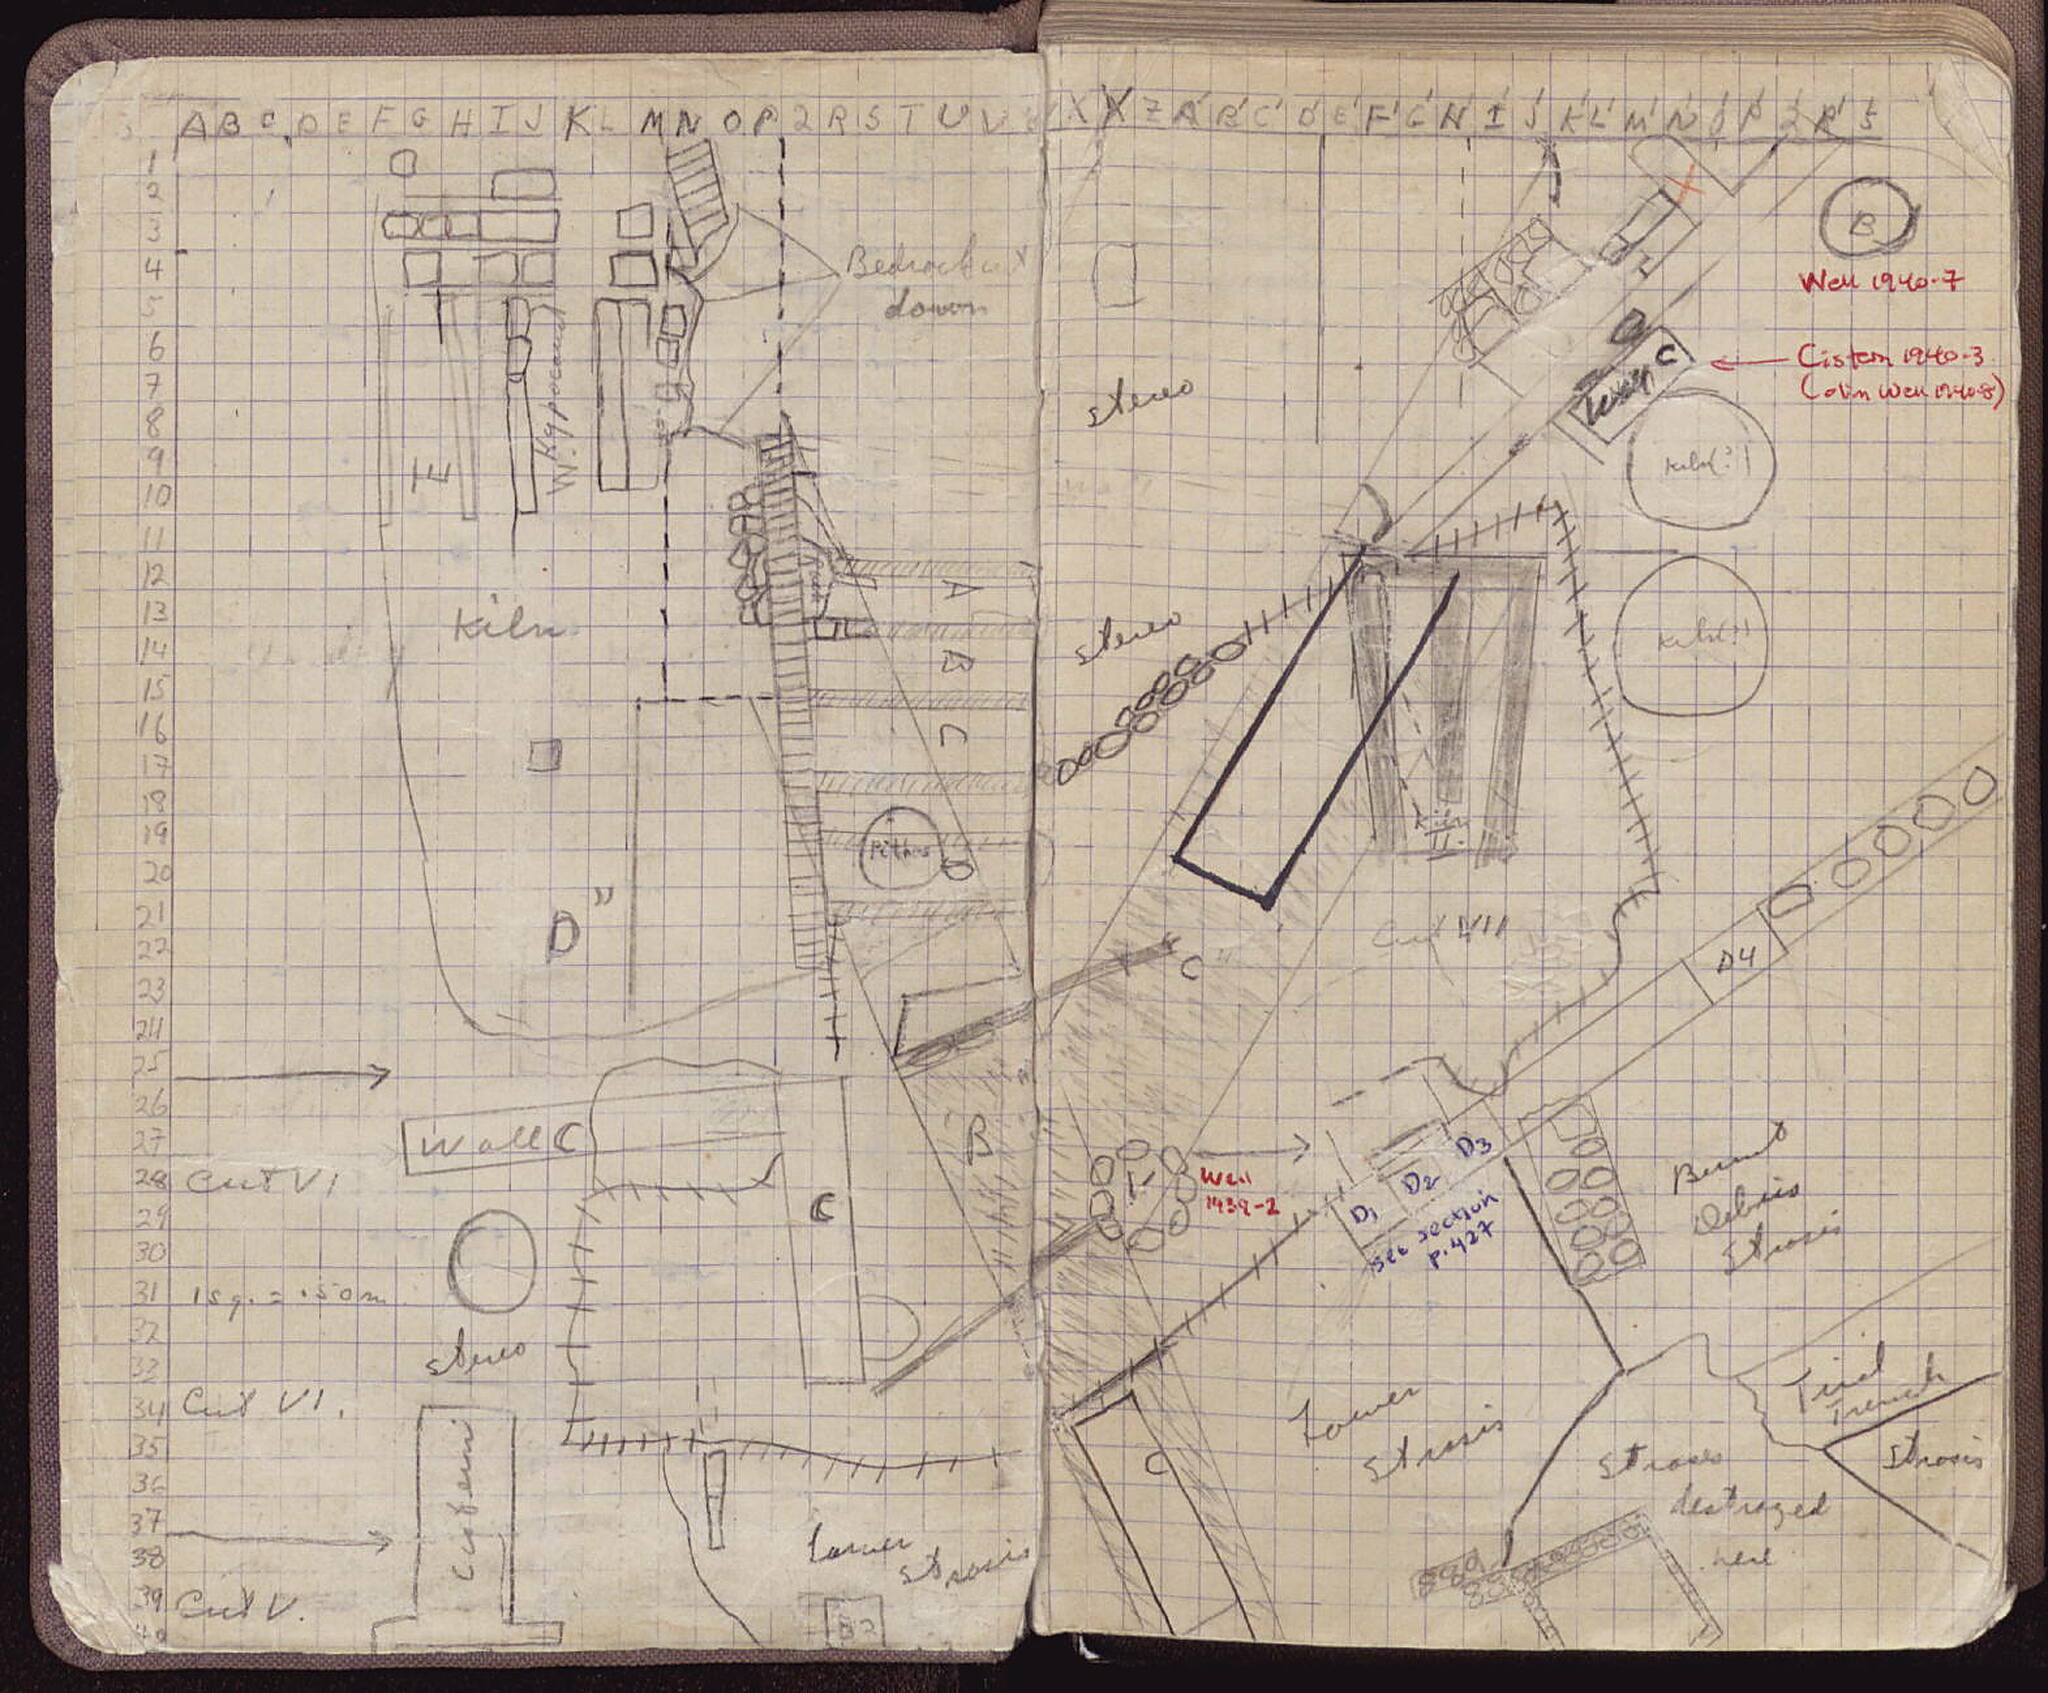 A B C D E F G H I J K L M N O P Q R S T U V
X X Z A' B' C' D' E' F' G' H' I' J' K' L' M' N' O' P' Q' R' S'
1
2
3
4
5
6
7
8
9
10
11
12
13
14
15
16
17
18
19
20
21
22
23
24
25
26
27
28
29
30
31
32
33
34
35
36
37
38
39
40
Bedrock cut
down
W. Hypocaust
E
Kiln
A
B
C
Pithos
D"
Wall C
B
Cut VI
C
1 sq. = .50m
stereo
Cut VI.
Lower
strosis
Cut V.
B2
B
Well 1940-7
Cistern 1940-3
(olim Well 1940-8)
C
stereo
Kiln(?)
stereo
Kiln(?)
Kiln
II.
Cut VII
C"
D4
Well
1939-2
D1
D2
D3
see section
p. 427
Burnt
Debris
Strosis
Trial
Trench
Lower
strosis
C
Stroses
destroyed
here
Strosis